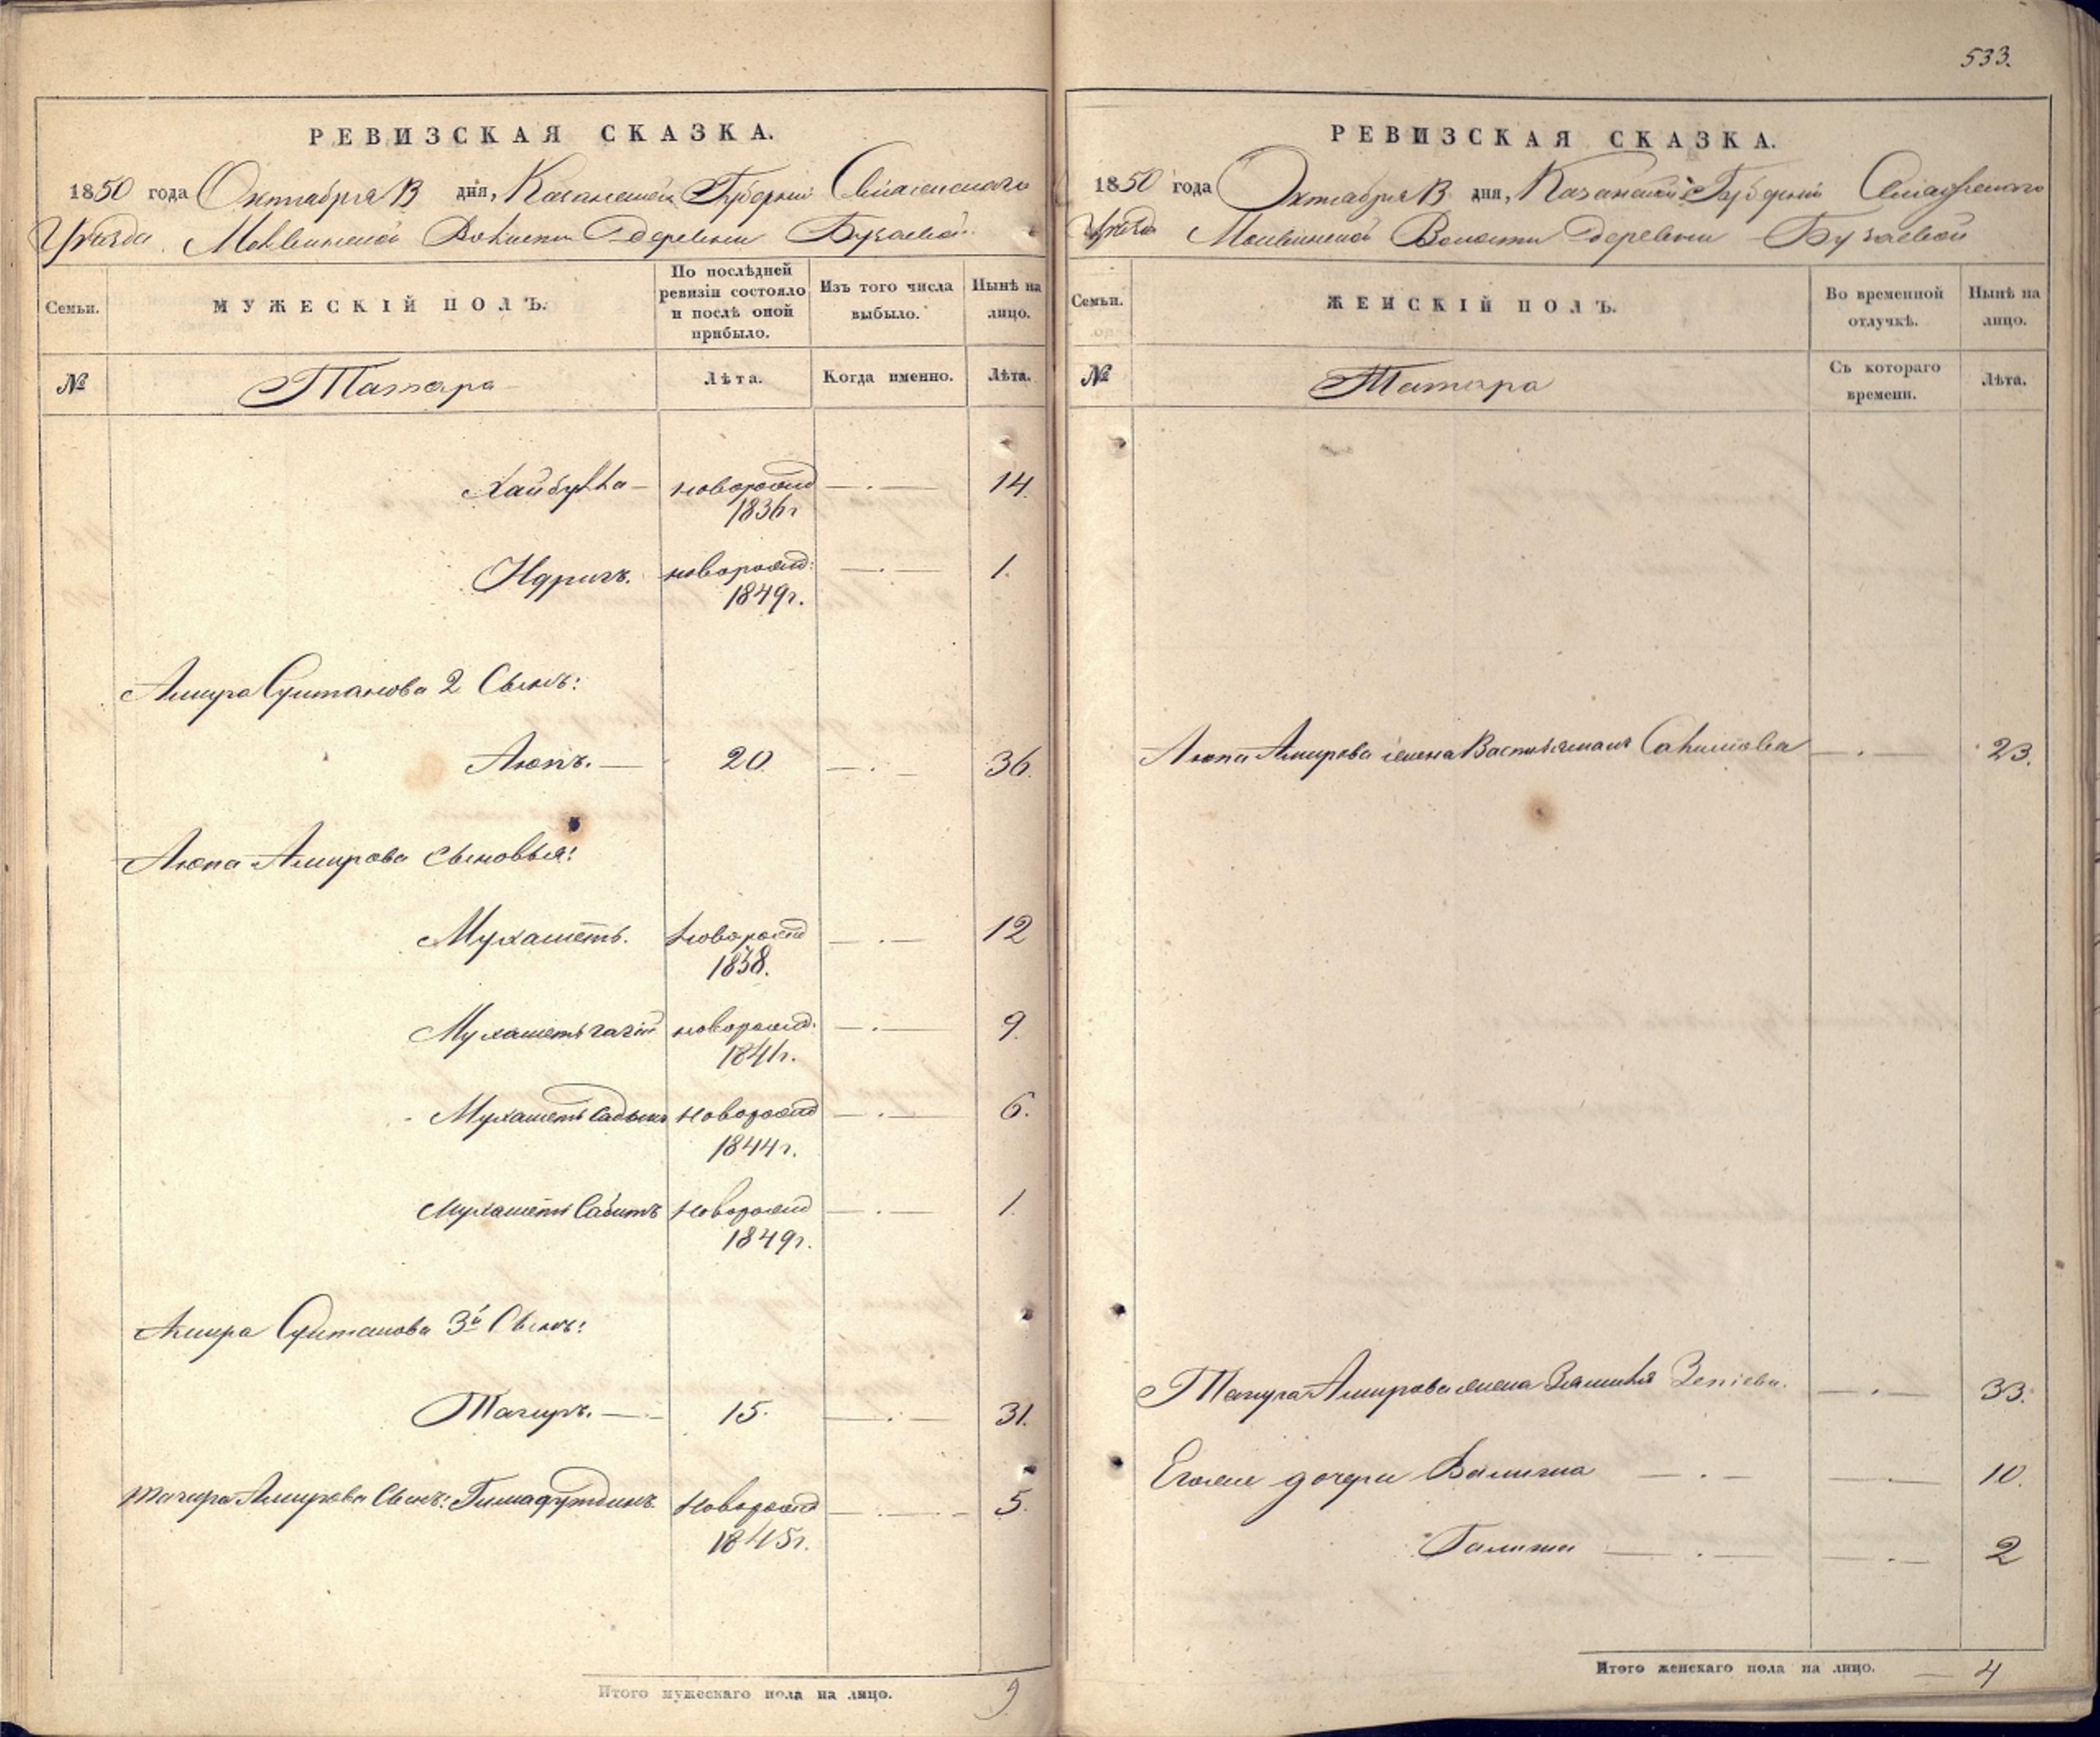 533.
РЕВИЗСКАЯ СКАЗКА.
1850 года Октября 13 дня, Казанской Губернии Свіяжскаго
Уѣзда Молвинской Волости деревни Бузаевой
Семьи.
МУЖЕСКІЙ ПОЛЪ.
По послѣдней ревизіи состояло и послѣ оной прибыло.
Изъ того числа выбыло.
Нынѣ на лицо.
№
Татара
Лѣта.
Когда именно.
Лѣта.
Хайбулла — новорожд 1836г — . — 14.
Идрисъ. новорожд: 1849г. — . — 1.
Амира Султанова 2 Сынъ:
Аюпъ. — 20. — . — 36.
Аюпа Амирова сыновья:
Мухаметъ. новорожд 1838. — . — 12
новорожд: 1841г. — . — 9.
Мухаметъ Садыкъ новорожд 1844г. — . — 6.
Мухаметъ Сабитъ новорожд 1849г. — . — 1.
Амира Султанова 3й Сынъ:
Тагиръ. — 15. — . — 31.
Тагира Амирова Сынъ: новорожд 1845г. — . — 5.
Итого мужескаго пола на лицо. 9
РЕВИЗСКАЯ СКАЗКА.
1850 года Октября 13 дня, Казанской Губерніи Свіяжскаго
Уѣзда Молвинской Волости деревни Бузаевой
Семьи.
ЖЕНСКІЙ ПОЛЪ.
Во временной отлучкѣ.
Нынѣ на лицо.
№
Татара
Съ котораго времени.
Лѣта.
Аюпа Амирова жена Салимова — . — 23.
Тагира Амирова жена — . — 33.
Егоже дочери — . — 10.
Галима — . — 2
Итого женскаго пола на лицо. — 4